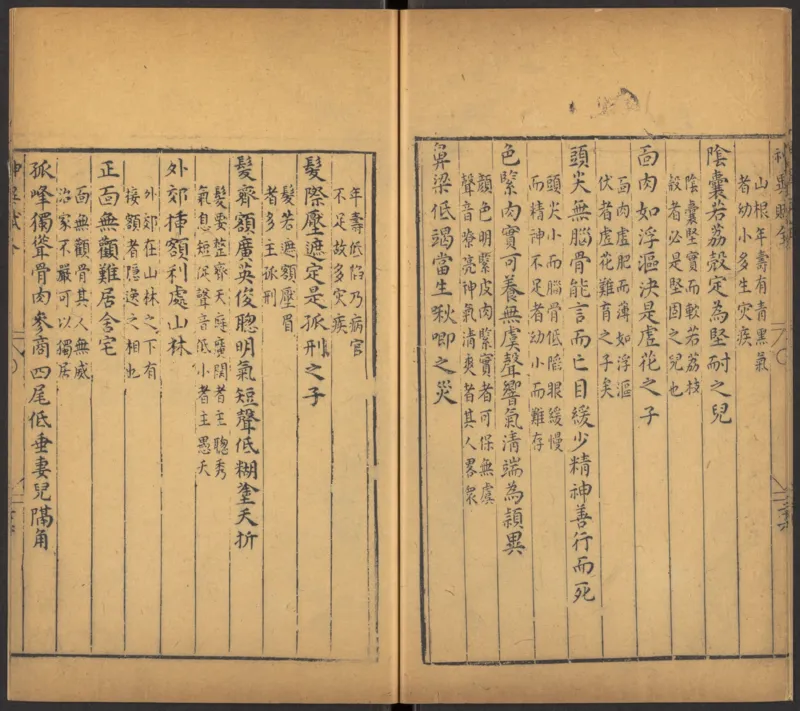 山根年壽有青黑氣
者幼小多生灾疾
陰囊若荔殼定為堅耐之兒
陰囊堅實而軟若荔枝
殼者必是堅固之兒也
面肉如浮漚決是虛花之子
面肉虛肥而薄如浮漚
伏者虛花難育之子矣
頭尖無腦骨能言而亡目緩少精神善行而死
頭尖小而腦骨低陷眼緩慢
而精神不足者幼小而難存
色緊肉實可養無虞聲響氣清端為穎異
顏色明緊皮肉緊實者可保無虞
聲音嘹亮神氣清爽者其人畧眾
鼻梁低竭當生啾唧之災
年壽低陷乃病宫
不足故多灾疾
髮際壓遮定是孤刑之子
髮若遮額壓眉
者多主孤刑
髮齊額廣英俊聰明氣短聲低糊塗夭折
髮要整齊天庭廣闊者主聰秀
氣息短促聲音低小者主愚夭
外郊挿額利處山林
外郊在山林之下有
接額者隱逸之相也
正面無顴難居舍宅
面無顴骨其人無威
治家不嚴可以獨居
孤峰獨聳骨肉參商四尾低垂妻兒隔角